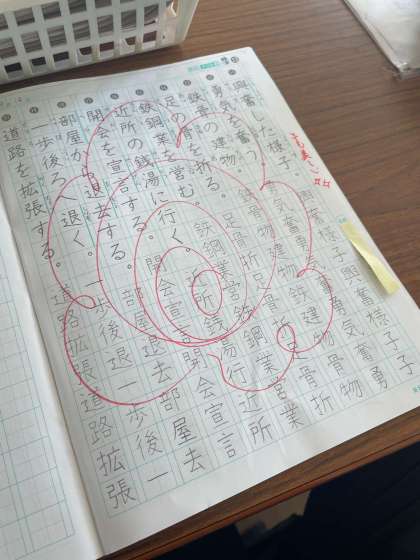 美しい
興奮した様子。興奮様子興奮様子
勇気を奮う。勇気奮勇気奮勇
鉄骨の建物。鉄骨建物鉄建物骨物
足の骨を折る。足骨折足骨折骨折
鉄鋼業を営む。鉄鋼業営鉄鋼業営業
近所の銭湯に行く。近所銭湯行近所
開会を宣言する。開会宣言開会宣言
部屋から退去する。部屋退去部屋去
一歩後ろへ退く。一歩後退一歩後一
道路を拡張する。道路拡張道路拡張